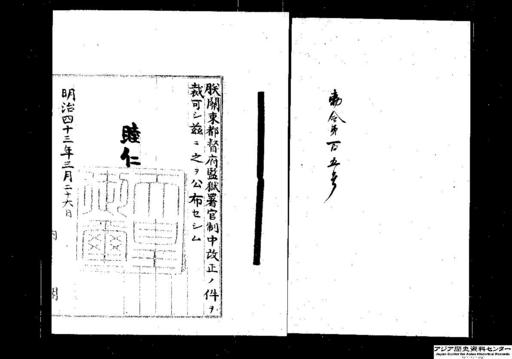 勅令第百五号
朕關東都督府監獄署官制中改正ノ件ヲ
裁可シ茲ニ之ヲ公布セシム
睦仁
天皇御璽
明治四十三年三月二十六日
内閣
アジア歴史資料センター
Japan Center for Asian Historical Records